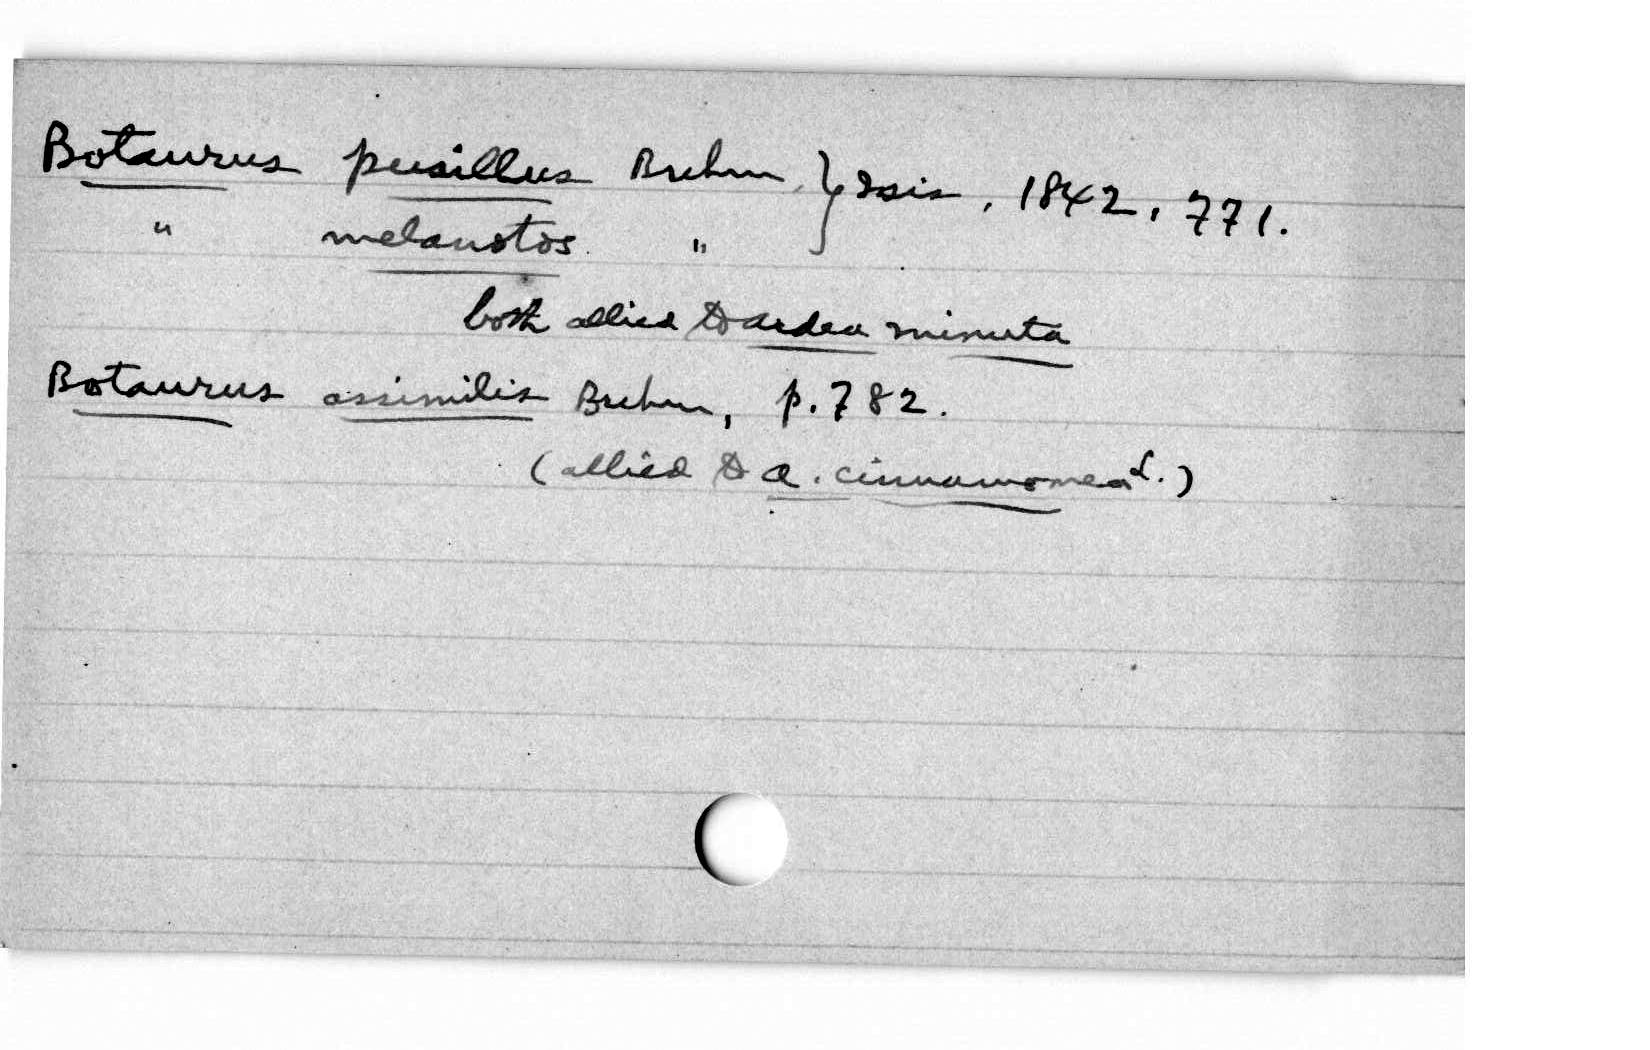 Botaurus pusillus Brehm. } Isis, 1842, 771.
" melanotos. "
both allied to ardea minuta
Botaurus assimilis Brehm, p. 782.
(allied to a. cinnamomea L.)